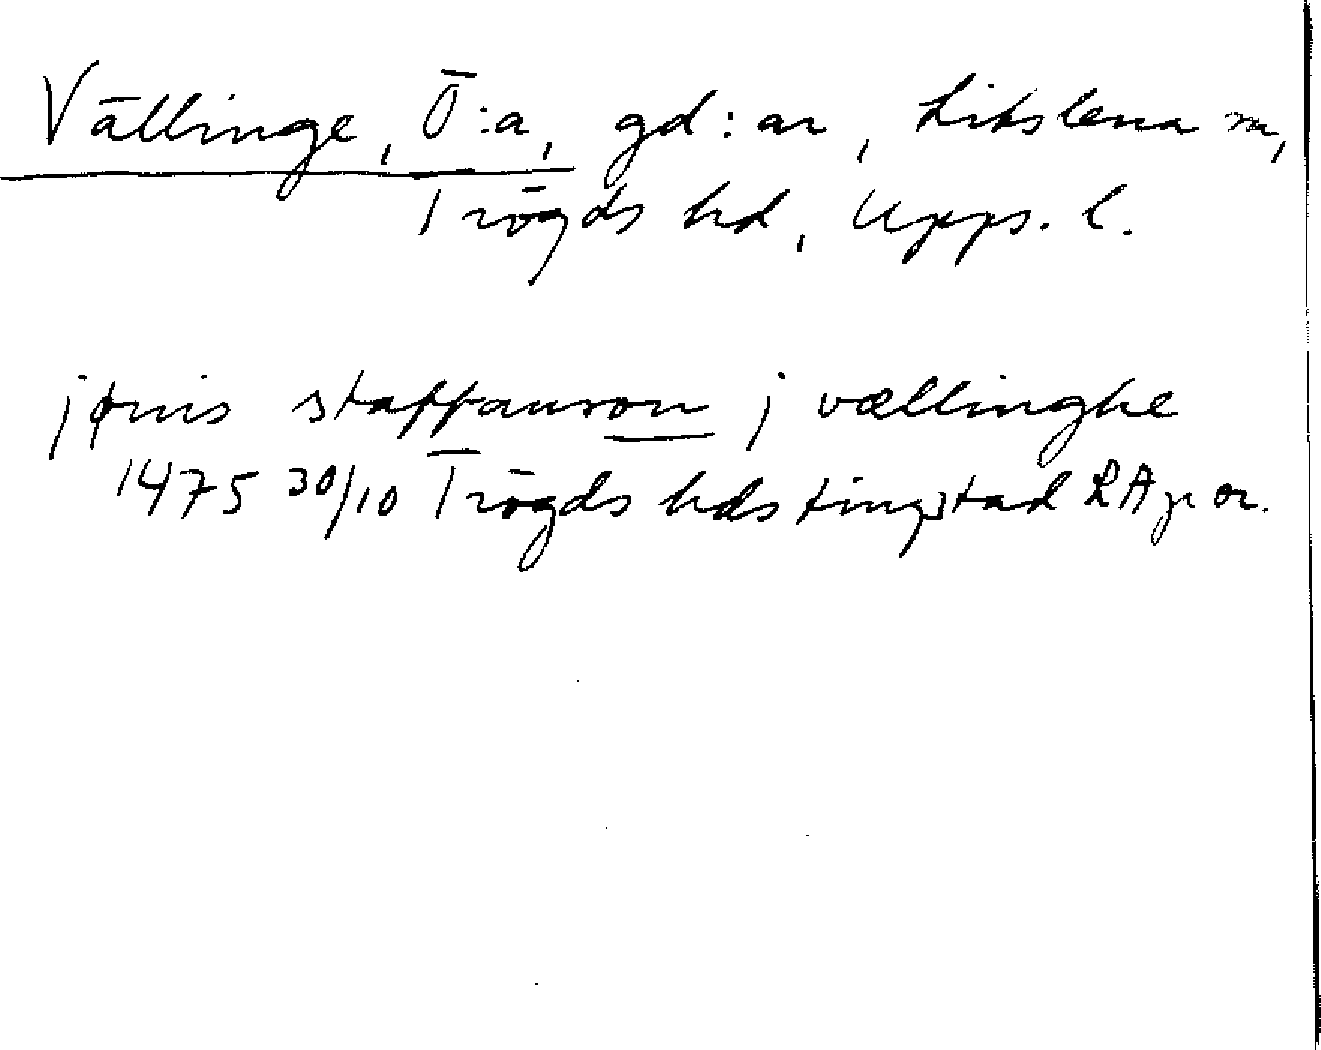 Vällinge, Ö:a, gd:ar, Litslena sn,
Trögds hd, Upps. l.
jønis staffanson j vællinghe
1475 30/10 Trögds hds tingstad RAp or.